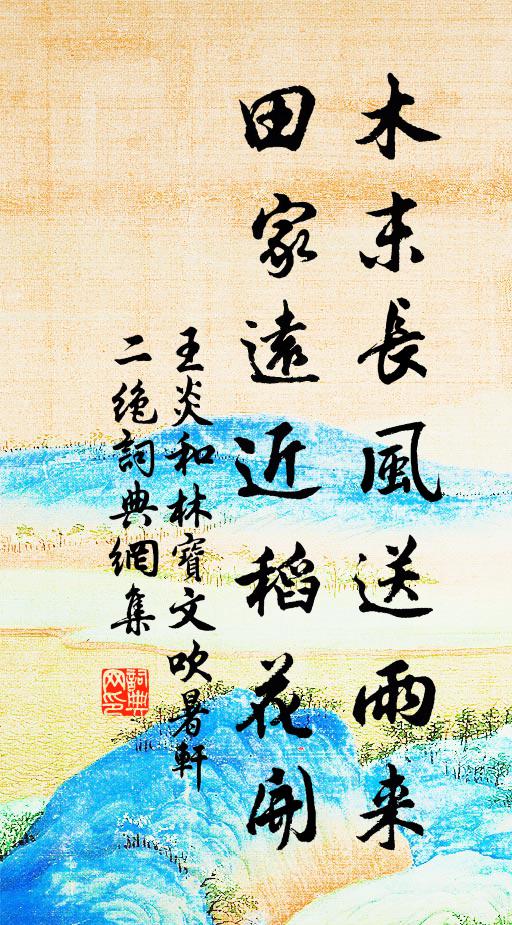 木末長風送雨来
田家遠近稻花開
王炎和林寶文吹暑軒
二絶詞典網集
詞典
网印